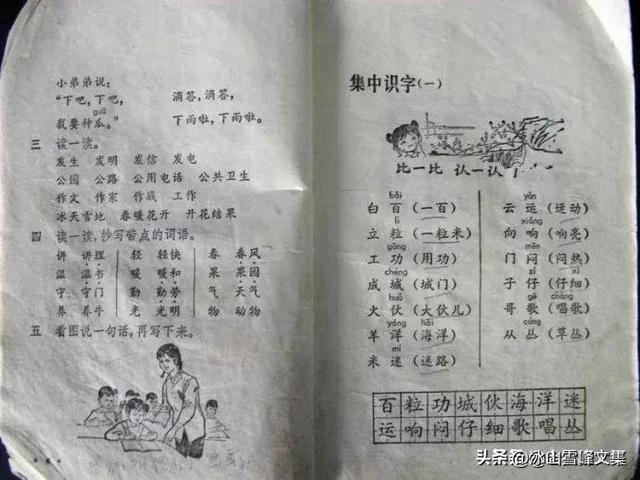 小弟弟说：
“下吧，下吧，　滴答，滴答，
guā
我要种瓜。”　下雨啦，下雨啦。
三　读一读。
发生　发明　发信　发电
公园　公路　公用电话　公共卫生
作文　作家　作战　工作
冰天雪地　春暖花开　开花结果
四　读一读，抄写带点的词语。
讲　讲理　轻　轻快　春　春风
温　温书　暖　暖和　果　果园
守　守门　勤　勤劳　气　天气
养　养牛　光　光明　物　动物
五　看图说一句话，再写下来。
集中识字（一）
比一比　认一认
bǎi　yùn
白　百（一百）　云　运（运动）
lì　xiǎng
立　粒（一粒米）　向　响（响亮）
gōng　mēn
工　功（用功）　门　闷（闷热）
chéng　zǐ
成　城（城门）　子　仔（仔细）
huǒ　gē chàng
火　伙（大伙儿）　哥　歌（唱歌）
yáng hǎi　cóng
羊　洋（海洋）　从　丛（草丛）
mí
米　迷（迷路）
百 粒 功 城 伙 海 洋 迷
运 响 闷 仔 细 歌 唱 丛
头条 @冰山雪峰文集